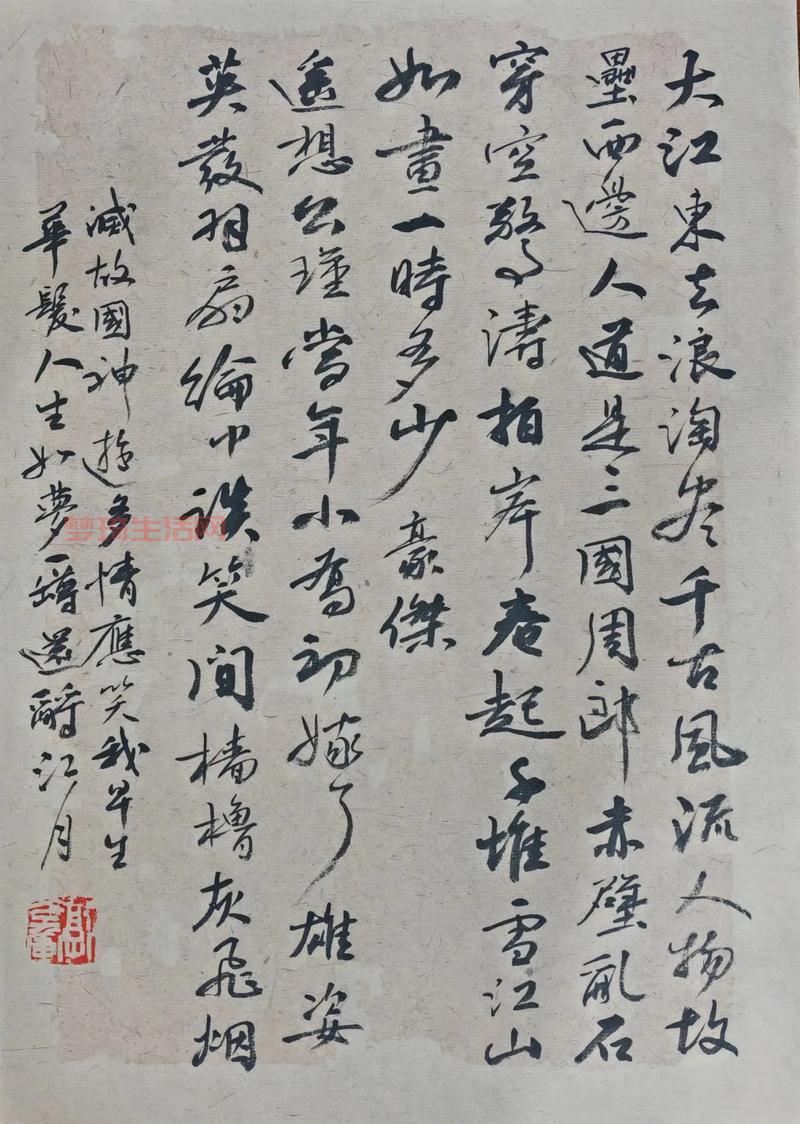 大江東去浪淘盡千古風流人物故
壘西邊人道是三國周郎赤壁亂石
穿空驚濤拍岸卷起千堆雪江山
如畫一時多少豪傑
遥想公瑾當年小喬初嫁了雄姿
英發羽扇綸巾談笑间檣櫓灰飛烟
滅故國神遊多情應笑我早生
華髮人生如夢一罇還酹江月
梦琦生活网